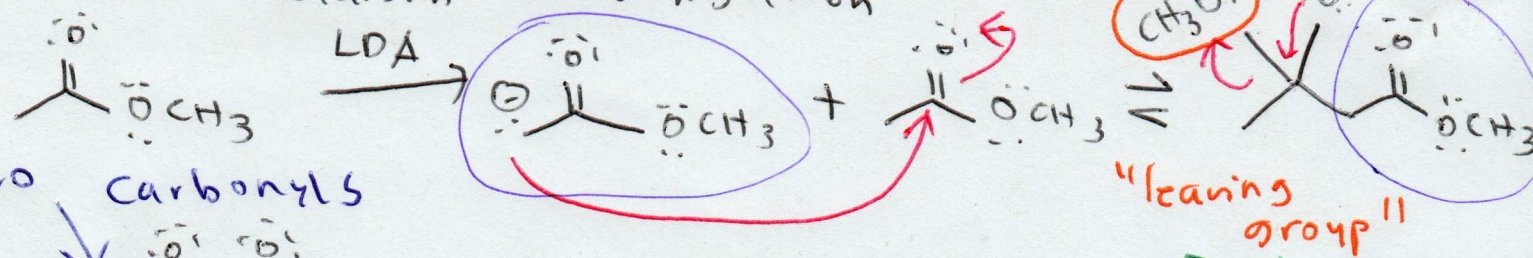 LDA
O
OCH3
⊖
O
OCH3
+
O
OCH3
CH3O
O
OCH3
carbonyls
"leaving
group"
O O